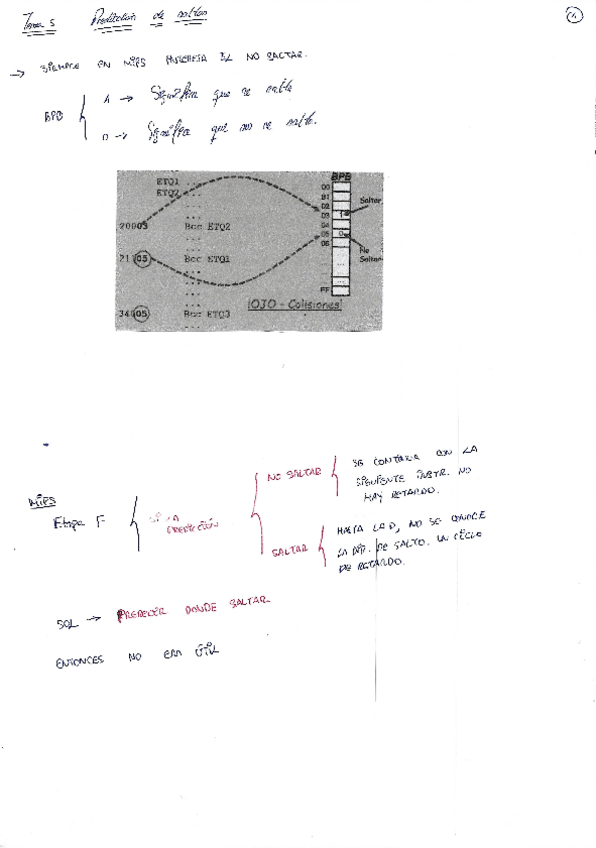 Tema 5 Predicción de saltos
4
→ SIEMPRE EN MIPS INTERESA EL NO SALTAR.
BPB
1 → Significa que se salta
0 → Significa que no se salta.
BPB
ETQ1 ...
ETQ2 ...
...
20003 Bcc ETQ2
...
21 05 Bcc ETQ1
...
34005 Bcc ETQ3
00
01
02
03 1
04
05 0
06
...
FF
Saltar
No Saltar
¡OJO - Colisiones!
MIPS
Etapa F
SI LA PREDICCIÓN
NO SALTAR
SE CONTINUA CON LA
SIGUIENTE INSTR. NO
HAY RETARDO.
SALTAR
HASTA LA D, NO SE CONOCE
LA DIR. DE SALTO. UN CICLO
DE RETARDO.
SOL → PREDECIR DONDE SALTAR
ENTONCES NO ERA ÚTIL